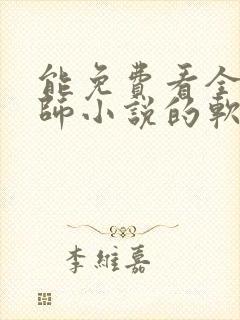 能免費看全
師小說的軟
李維嘉